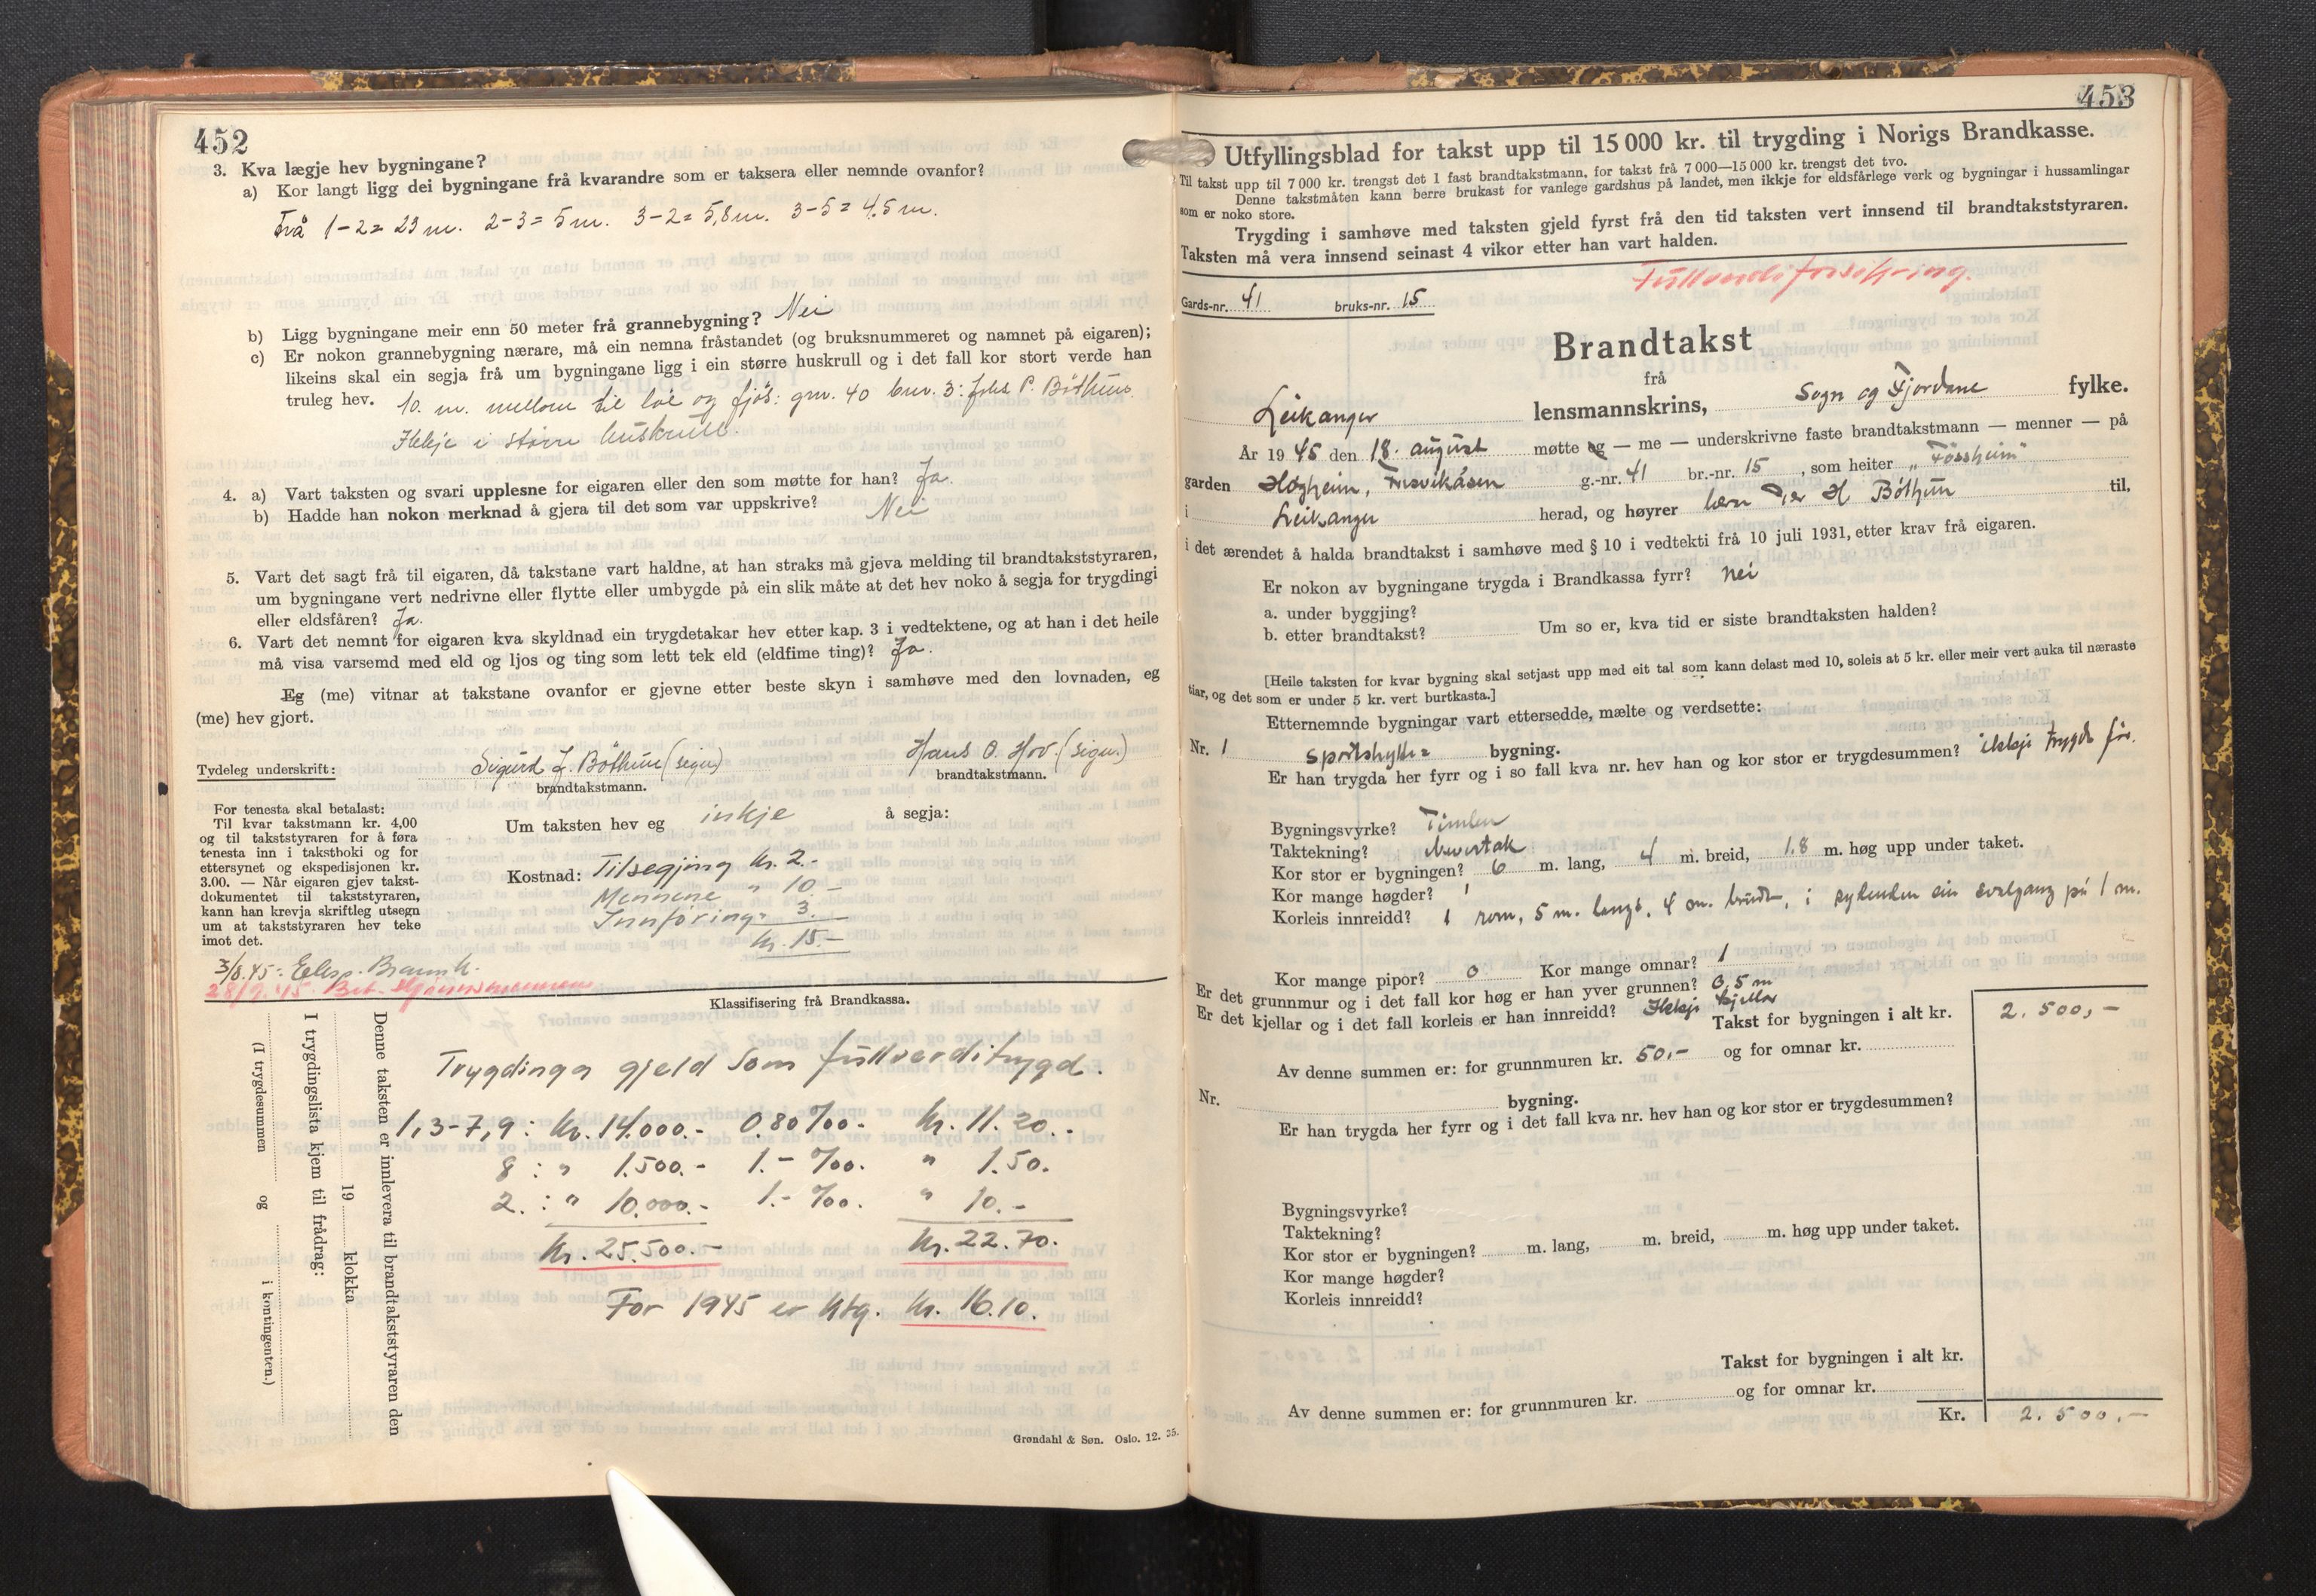 452
3. Kva lægje hev bygningane?
a) Kor langt ligg dei bygningane frå kvarandre som er taksera eller nemnde ovanfor?
Frå 1-2= 23 m. 2-3= 5 m. 3-2= 5,8 m. 3-5= 4,5 m.
b) Ligg bygningane meir enn 50 meter frå grannebygning? Nei
c) Er nokon grannebygning nærare, må ein nemna fråstandet (og bruksnummeret og namnet på eigaren);
likeins skal ein segja frå um bygningane ligg i ein større huskrull og i det fall kor stort verde han
truleg hev. 10. m. mellom til löe og fjös: gnr. 40 bnr. 3: Johs P. Böthun.
Ikkje i större huskrull.
4. a) Vart taksten og svari upplesne for eigaren eller den som møtte for han? Ja.
b) Hadde han nokon merknad å gjera til det som var uppskrive? Nei
5. Vart det sagt frå til eigaren, då takstane vart haldne, at han straks må gjeva melding til brandtakststyraren,
um bygningane vert nedrivne eller flytte eller umbygde på ein slik måte at det hev noko å segja for trygdingi
eller eldsfåren? Ja.
6. Vart det nemnt for eigaren kva skyldnad ein trygdetakar hev etter kap. 3 i vedtektene, og at han i det heile
må visa varsemd med eld og ljos og ting som lett tek eld (eldfime ting)? Ja.
Eg (me) vitnar at takstane ovanfor er gjevne etter beste skyn i samhøve med den lovnaden, eg
(me) hev gjort.
Tydeleg underskrift: Sigurd J. Böthun (sign) Hans O. Hov. (sign.)
brandtakstmann. brandtakstmann.
For tenesta skal betalast:
Til kvar takstmann kr. 4,00
og til takststyraren for å føra
tenesta inn i taksthoki og for
ettersynet og ekspedisjonen kr.
3.00. — Når eigaren gjev takst-
dokumentet til takststyraren,
kann han krevja skriftleg utsegn
um at takststyraren hev teke
imot det.
Um taksten hev eg inkje å segja:
Kostnad: Tilsegjing kr. 2.-
Mennene " 10 -
Innföring " 3.
kr. 15.-
3/8.45: Eksp. Brannk.
28/9.45. Bet.
Klassifisering frå Brandkassa.
Trygdinga gjeld som fullverditrygd.
1,3-7,9: kr. 14.000.- 0.80 ‰. kr. 11.20.-
8: " 1.500.- 1.- ‰. " 1.50.
2.: " 10.000.- 1.- ‰. " 10.-
kr. 25.500.- kr. 22.70.
For 1945 er ktg. kr. 16.10.
Denne taksten er innlevera til brandtakststyraren den
19 klokka
I trygdingslista kjem til frådrag:
(I trygdesummen og i kontingenten.)
Grøndahl & Søn. Oslo. 12. 35.
453
Utfyllingsblad for takst upp til 15 000 kr. til trygding i Norigs Brandkasse.
Til takst upp til 7 000 kr. trengst det 1 fast brandtakstmann, for takst frå 7 000—15 000 kr. trengst det tvo.
Denne takstmåten kann berre brukast for vanlege gardshus på landet, men ikkje for eldsfårlege verk og bygningar i hussamlingar
som er noko store.
Trygding i samhøve med taksten gjeld fyrst frå den tid taksten vert innsend til brandtakststyraren.
Taksten må vera innsend seinast 4 vikor etter han vart halden.
Fullverdiforsikring.
Gards-nr. 41 bruks-nr. 15
Brandtakst
frå
Leikanger lensmannskrins, Sogn og Fjordane fylke.
År 1945 den 18. august møtte eg — me — underskrivne faste brandtakstmann — menner — på
garden Høgheim, g.-nr. 41 br.-nr. 15, som heiter "Fossheim"
i Leikanger herad, og høyrer Per H Böthun til,
i det ærendet å halda brandtakst i samhøve med § 10 i vedtekti frå 10 juli 1931, etter krav frå eigaren.
Er nokon av bygningane trygda i Brandkassa fyrr? Nei
a. under byggjing?
b. etter brandtakst? Um so er, kva tid er siste brandtaksten halden?
[Heile taksten for kvar bygning skal setjast upp med eit tal som kann delast med 10, soleis at 5 kr. eller meir vert auka til næraste
tiar, og det som er under 5 kr. vert burtkasta.]
Etternemnde bygningar vart ettersedde, mælte og verdsette:
Nr. 1 sportshytte bygning.
Er han trygda her fyrr og i so fall kva nr. hev han og kor stor er trygdesummen? ikkje trygda før.
Bygningsvyrke? Timber
Taktekning? nevertak
Kor stor er bygningen? 6 m. lang, 4 m. breid, 1.8 m. høg upp under taket.
Kor mange høgder? 1
Korleis innreidd? 1 rom, 5 m. langt, 4 m. breidt, i sydenden ein svalgang på 1 m.
Kor mange pipor? 0 Kor mange omnar? 1
Er det grunnmur og i det fall kor høg er han yver grunnen? 0,5 m
Er det kjellar og i det fall korleis er han innreidd? Ikkje kjellar
Takst for bygningen i alt kr. 2.500,-
Av denne summen er: for grunnmuren kr. 50.- og for omnar kr.
Nr. bygning.
Er han trygda her fyrr og i det fall kva nr. hev han og kor stor er trygdesummen?
Bygningsvyrke?
Taktekning?
Kor stor er bygningen? m. lang, m. breid, m. høg upp under taket.
Kor mange høgder?
Korleis innreidd?
Takst for bygningen i alt kr.
Av denne summen er: for grunnmuren kr. og for omnar kr.
Kr. 2.500.-